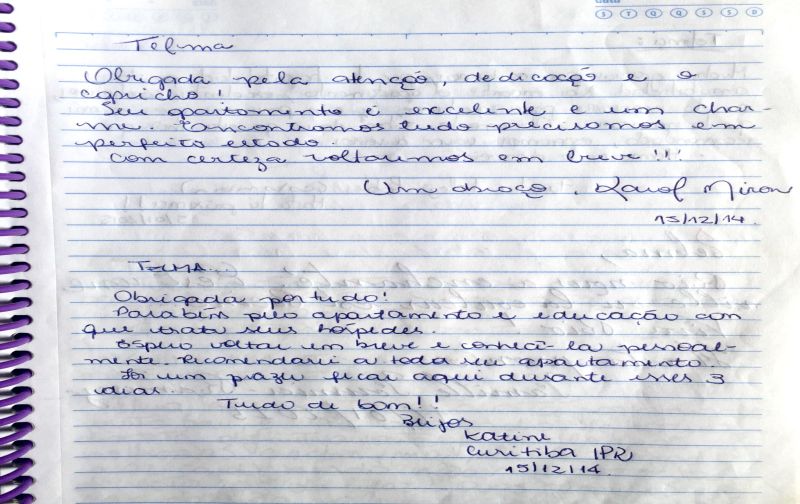 Data
S T Q Q S S D
Telma
Obrigada pela atenção, dedicação e o
capricho!
Seu apartamento é excelente e um char-
me. Encontramos tudo precisamos em
perfeito estado.
Com certeza voltaremos em breve!!!
Um abraço, Karol Miron
15/12/14.
TELMA...
Obrigada por tudo!
Parabéns pelo apartamento e educação con
que trata seus hóspedes.
Espero voltar em breve e conhecê-la pessoal-
mente. Recomendarei a toda seu apartamento.
Foi um prazer ficar aqui durante esses 3
dias.
Tudo de bom!!
Beijos
Katine
Curitiba IPR
15/12/14.